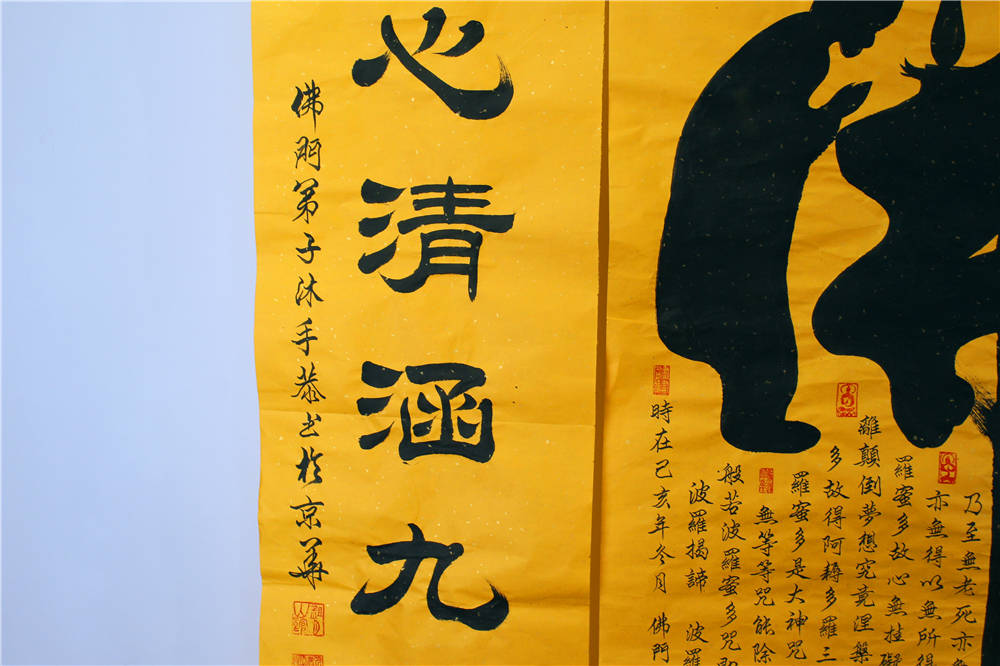 乃至無老死亦無
亦無得以無所得
羅蜜多故心無挂礙
離顛倒夢想究竟涅槃
多故得阿耨多羅三
羅蜜多是大神咒
無等等咒能除
般若波羅蜜多咒即
波羅揭諦 波羅
時在己亥年冬月 佛門
心清涵九
佛門弟子沐手恭书於京華